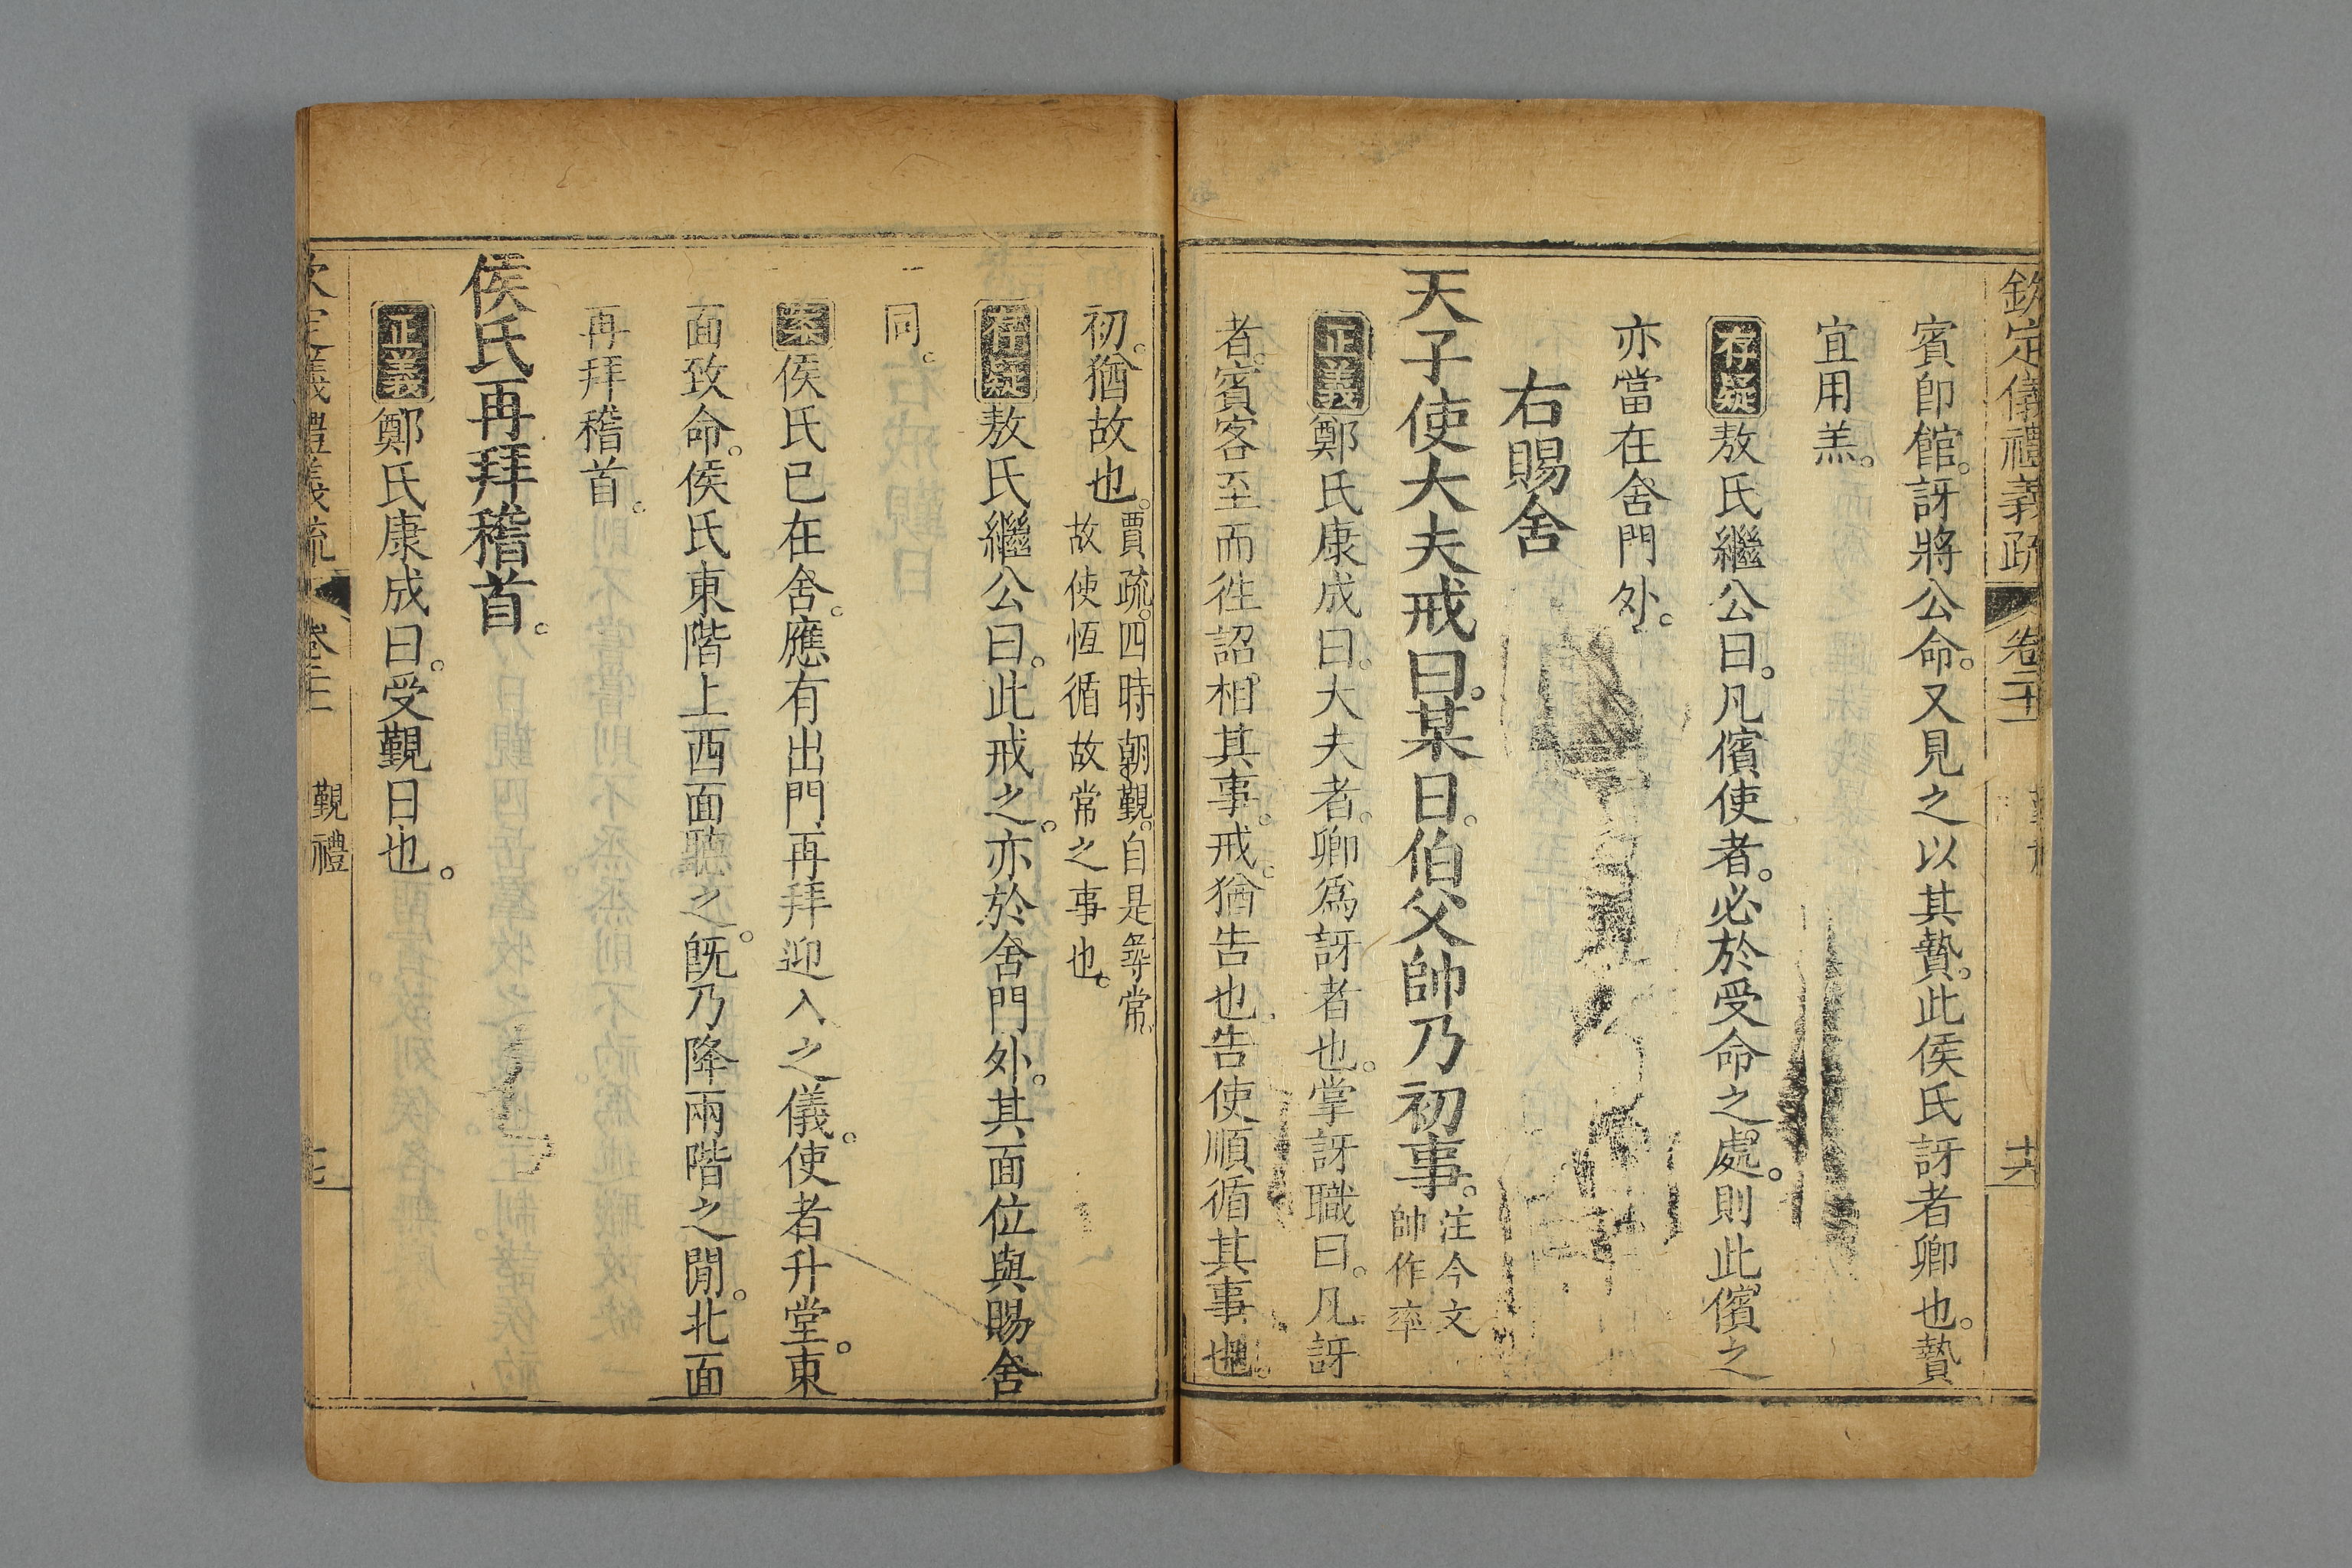 欽定儀禮義疏 卷二十 十六
賓卽館。訝將公命。又見之以其贄。此侯氏訝者卿也。贄
宜用羔。
存疑敖氏繼公曰。凡儐使者。必於受命之處。則此儐之
亦當在舍門外。
右賜舍
天子使大夫戒曰。某日。伯父帥乃初事。注今文帥作率
正義鄭氏康成曰。大夫者。卿爲訝者也。掌訝職曰。凡訝
者。賓客至而徃詔。相其事。戒。猶告也。告使順循其事也。
初。猶故也。賈疏。四時朝覲。自是尋常。故使恆循故常之事也。
存疑敖氏繼公曰。此戒之。亦於舍門外。其面位與賜舍
同。
案侯氏已在舍。應有出門再拜迎入之儀。使者升堂。東
面致命。侯氏東階上西面聽之。旣乃降兩階之閒。北面
再拜稽首。
侯氏再拜稽首。
正義鄭氏康成曰。受覲日也。
欽定儀禮義疏 覲禮